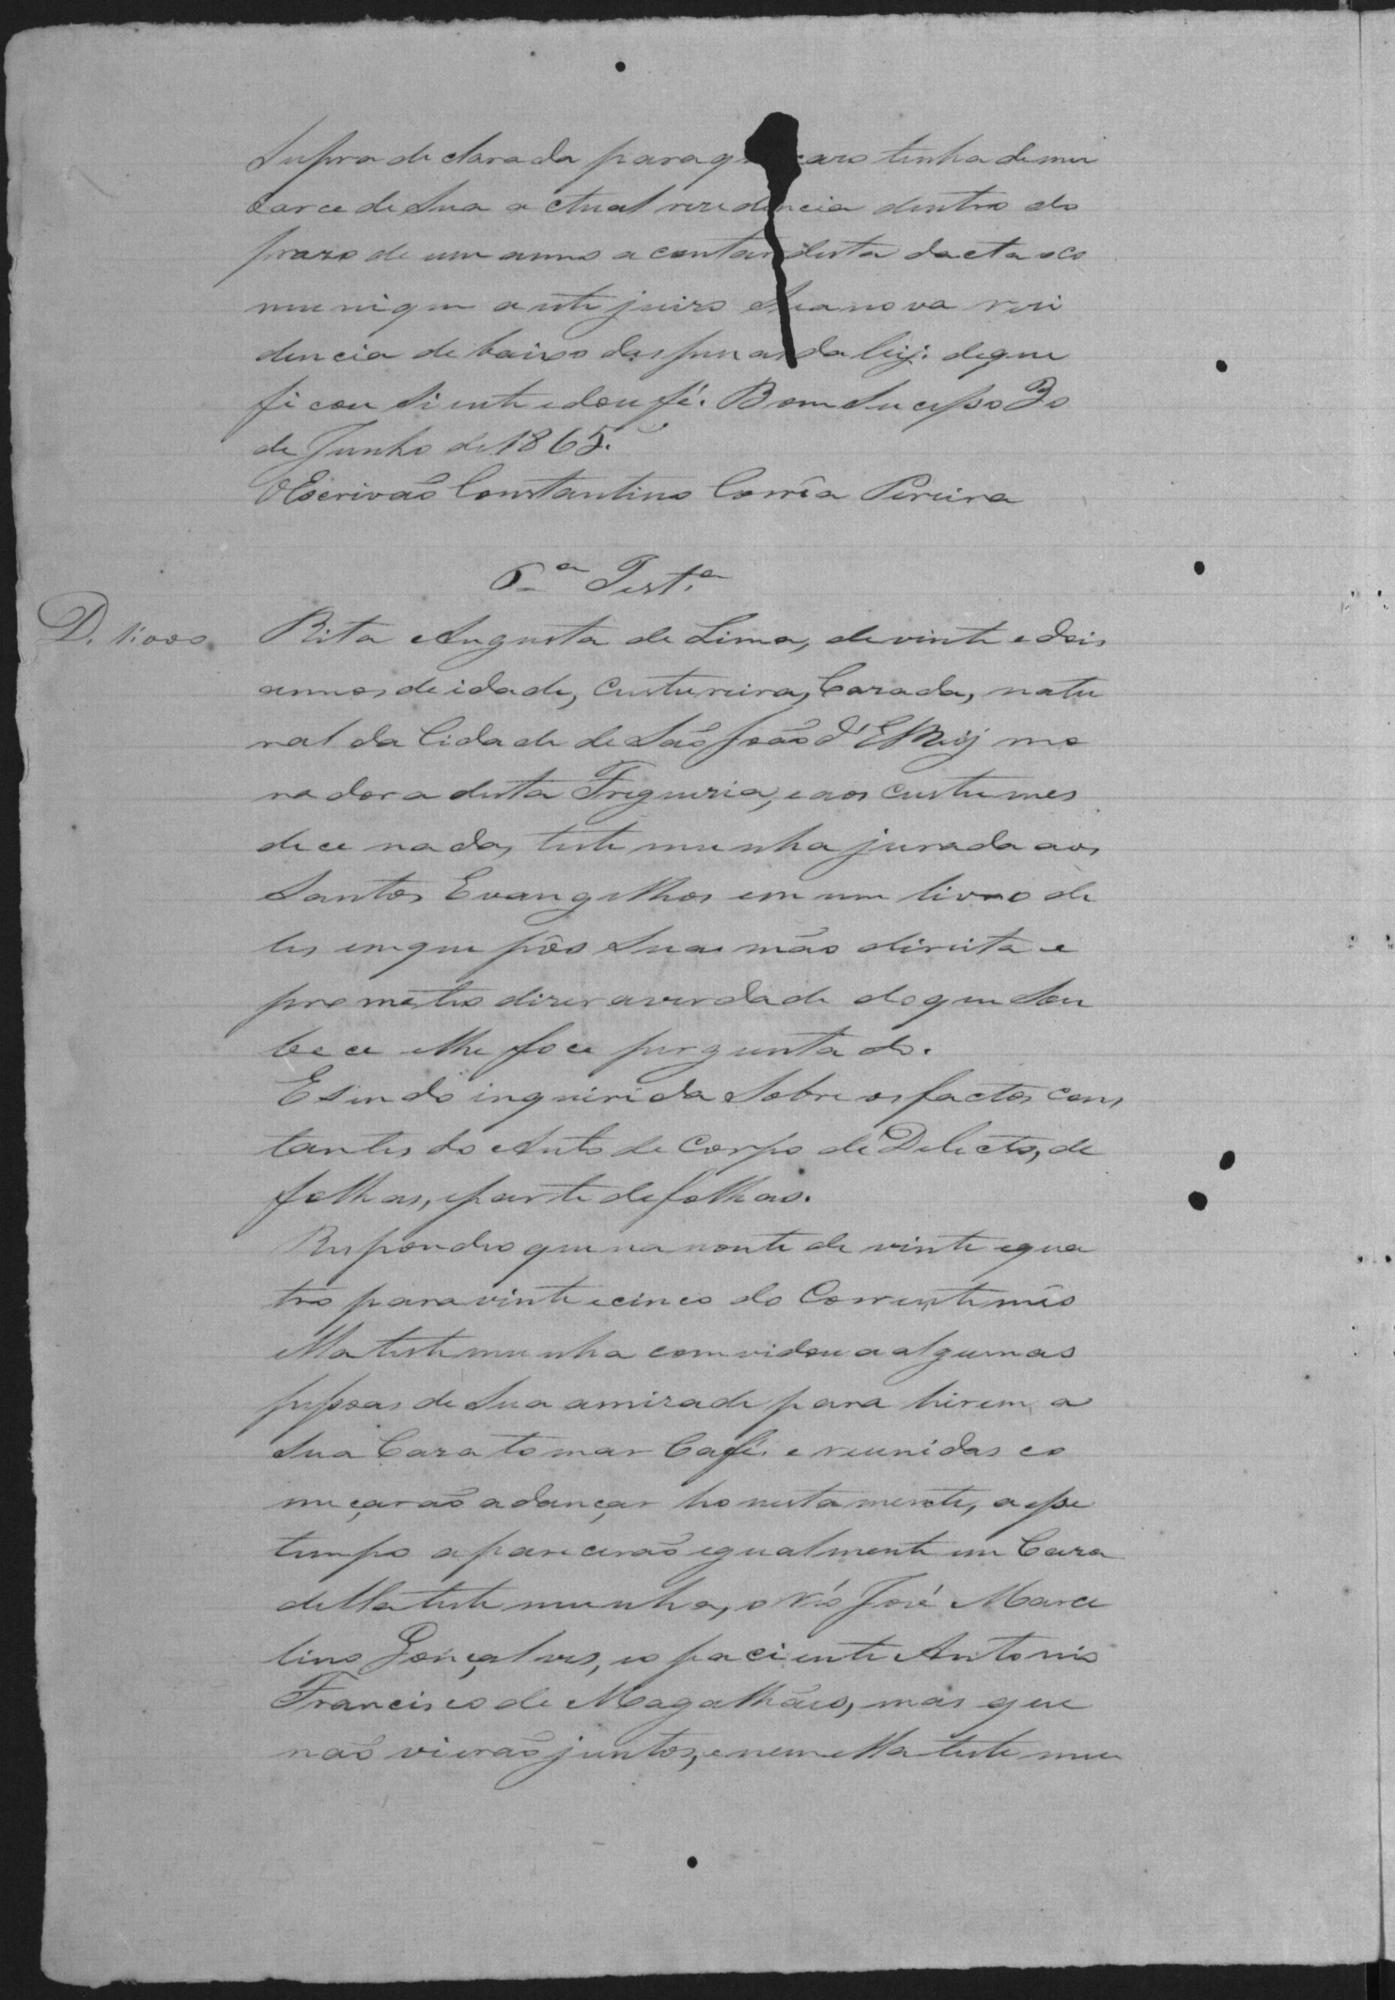 Supra declarada para que caso tenha demu
darce de Sua actual residencia dentro do
praso de um anno a contar desta dacta o co
munique a este juizo Sua nova resi
dencia debaixo das penas da lei; de que
ficou Siente e dou fé. Bom Sucesso 30
de Junho de 1865.
O Escrivaõ Constantino Corrêa Pereira
6ª Test.ª
D. 1:000
Rita Augusta de Lima, de vinte e dois
annos de idade, Custureira, Cazada, natu
ral da Cidade de Saõ Joaõ d'El Rei, mo
radora desta Freguezia, e aos custumes
dice nada, testemunha jurada aos
Santos Evangelhos em um livro de
les em que pôs Sua maõ direita e
prometeo dizer a verdade do que Sou
bece e lhe foce perguntado.
E Sendo inquirida Sobre os factos cons
tantes do Auto de Corpo de Delicto, de
folhas, e parte de folhas.
Respondeo que na noute de vinte e qua
tro para vinte e cinco do Corrente mês
ella testemunha comvidou a algumas
pessoas de Sua amizade para hirem a
Sua Caza tomar Café, e reunidas co
meçaraõ a dançar honestamente, a esse
tempo apareceraõ egualmente em Caza
della testemunha, o réo José Marce
lino Gonçalves, e o paciente Antonio
Francisco de Magalhães, mas que
naõ vieraõ juntos, e nem ella testemu